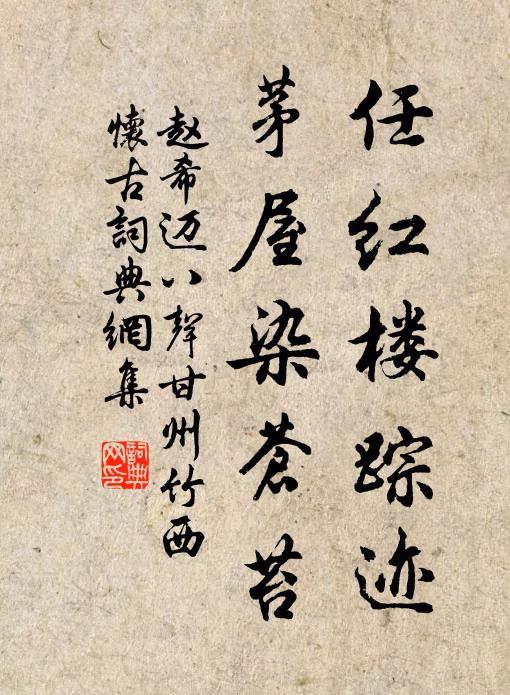 任红楼踪迹
茅屋染苍苔
赵希迈八声甘州竹西
懷古詞典網集
詞典网印